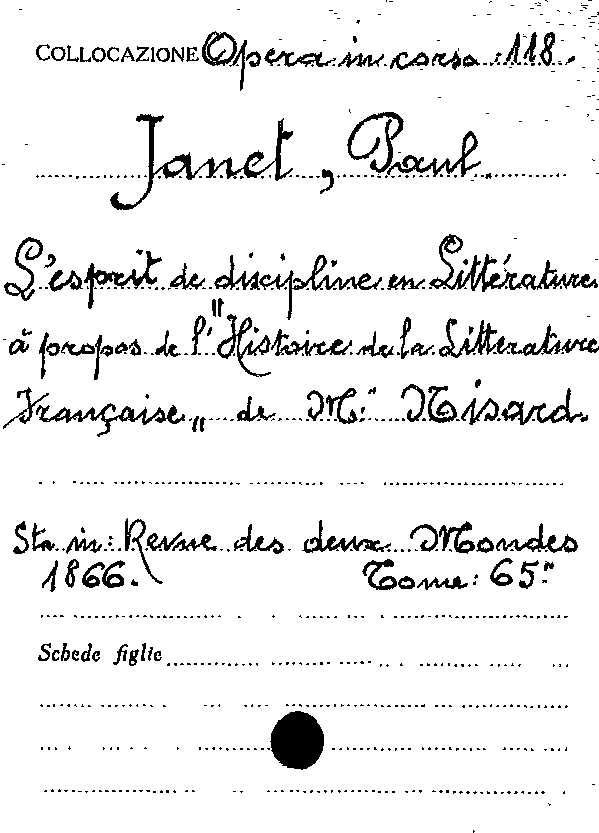 COLLOCAZIONE Opera in corso . 118 .
Janet , Paul.
L'esprit de discipline en Littérature
à propos de l' "Histoire de la Littérature
Française„ de M.r Nisard.
Sta in: Revue des deux Mondes
1866. Tome: 65.º
Schede figlie